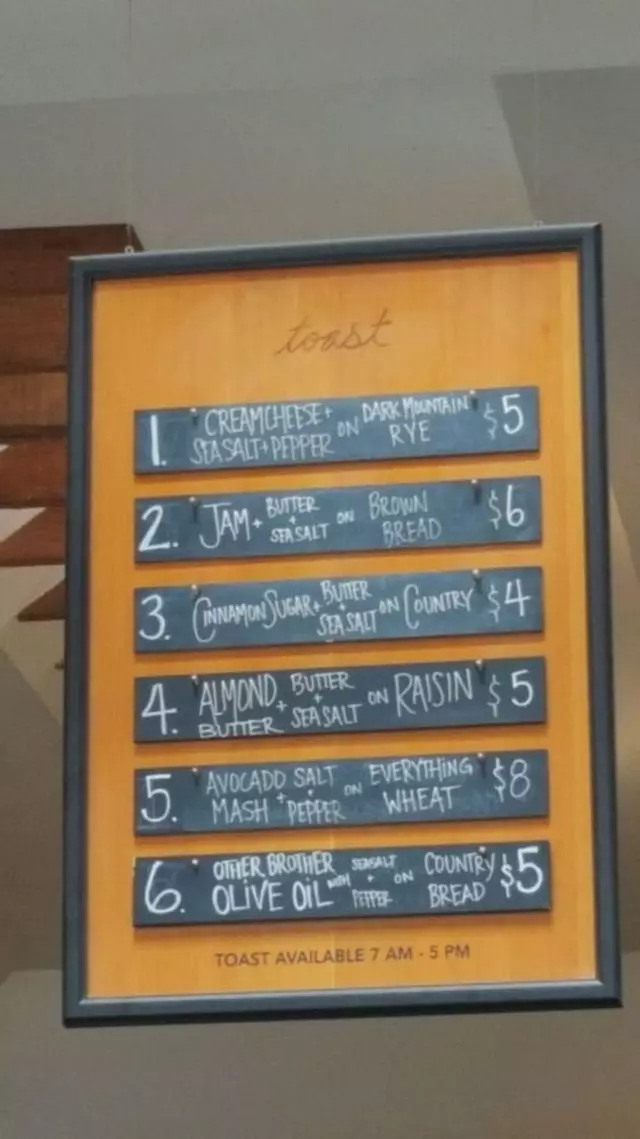 toast
1. CREAM CHEESE + SEA SALT + PEPPER ON DARK MOUNTAIN RYE $5
2. JAM + BUTTER + SEA SALT ON BROWN BREAD $6
3. CINNAMON SUGAR + BUTTER + SEA SALT ON COUNTRY $4
4. ALMOND BUTTER + BUTTER + SEA SALT ON RAISIN $5
5. AVOCADO MASH + SALT + PEPPER ON EVERYTHING WHEAT $8
6. OTHER BROTHER OLIVE OIL WITH SEA SALT + PEPPER ON COUNTRY BREAD $5
TOAST AVAILABLE 7 AM - 5 PM